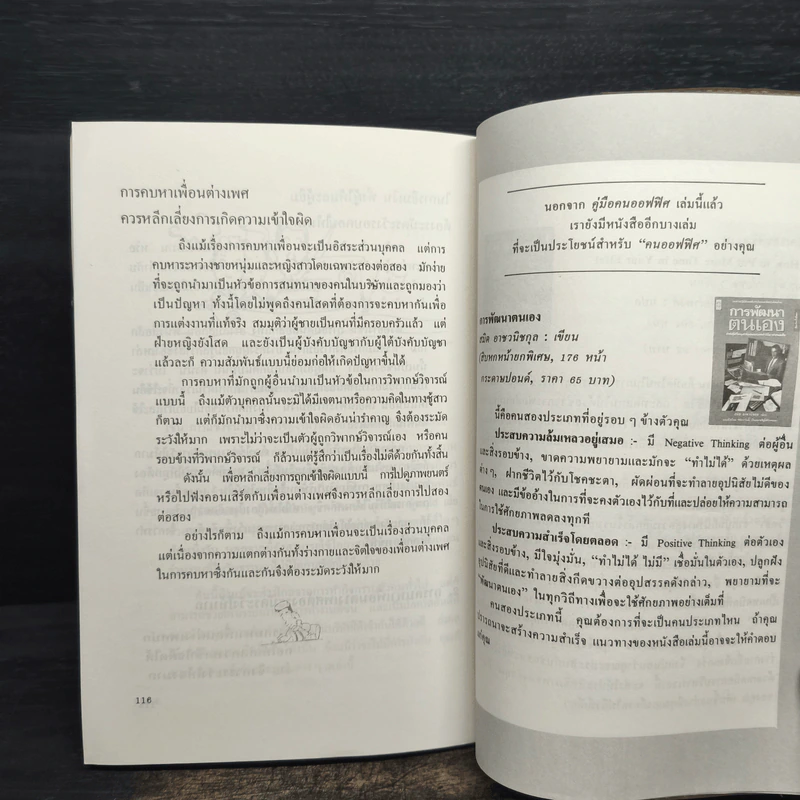 การคบหาเพื่อนต่างเพศ
ควรหลีกเลี่ยงการเกิดความเข้าใจผิด
ถึงแม้เรื่องการคบหาเพื่อนจะเป็นอิสระส่วนบุคคล แต่การ
คบหาระหว่างชายหนุ่มและหญิงสาวโดยเฉพาะสองต่อสอง มักง่าย
ที่จะถูกนำมาเป็นหัวข้อการสนทนาของคนในบริษัทและถูกมองว่า
เป็นปัญหา ทั้งนี้โดยไม่พูดถึงคนโสดที่ต้องการจะคบหากันเพื่อ
การแต่งงานที่แท้จริง สมมุติว่าผู้ชายเป็นคนที่มีครอบครัวแล้ว แต่
ฝ่ายหญิงยังโสด และยังเป็นผู้บังคับบัญชากับผู้ใต้บังคับบัญชา
แล้วละก็ ความสัมพันธ์แบบนี้ย่อมก่อให้เกิดปัญหาขึ้นได้
การคบหาที่มักถูกผู้อื่นนำมาเป็นหัวข้อในการวิพากษ์วิจารณ์
แบบนี้ ถึงแม้ตัวบุคคลนั้นจะมิได้มีเจตนาหรือความคิดในทางชู้สาว
ก็ตาม แต่ก็มักนำมาซึ่งความเข้าใจผิดอันน่ารำคาญ จึงต้องระมัด
ระวังให้มาก เพราะไม่ว่าจะเป็นตัวผู้ถูกวิพากษ์วิจารณ์เอง หรือคน
รอบข้างที่วิพากษ์วิจารณ์ ก็ล้วนแต่รู้สึกว่าเป็นเรื่องไม่ดีด้วยกันทั้งสิ้น
ดังนั้น เพื่อหลีกเลี่ยงการถูกเข้าใจผิดแบบนี้ การไปดูภาพยนตร์
หรือไปฟังคอนเสิร์ตกับเพื่อนต่างเพศจึงควรหลีกเลี่ยงการไปสอง
ต่อสอง
อย่างไรก็ตาม ถึงแม้การคบหาเพื่อนจะเป็นเรื่องส่วนบุคคล
แต่เนื่องจากความแตกต่างกันทั้งร่างกายและจิตใจของเพื่อนต่างเพศ
ในการคบหาซึ่งกันและกันจึงต้องระมัดระวังให้มาก
116
นอกจาก คู่มือคนออฟฟิศ เล่มนี้แล้ว
เรายังมีหนังสืออีกบางเล่ม
ที่จะเป็นประโยชน์สำหรับ "คนออฟฟิศ" อย่างคุณ
การพัฒนาตนเอง
สมิต อาชวนิชกุล : เขียน
(สิบหกหน้ายกพิเศษ, 176 หน้า
กระดาษปอนด์, ราคา 65 บาท)
การพัฒนา
ตนเอง
นี้คือคนสองประเภทที่อยู่รอบ ๆ ข้างตัวคุณ
ประสบความล้มเหลวอยู่เสมอ :- มี Negative Thinking ต่อผู้อื่น
และสิ่งรอบข้าง, ขาดความพยายามและมักจะ "ทำไม่ได้" ด้วยเหตุผล
ต่าง ๆ, ฝากชีวิตไว้กับโชคชะตา, ผัดผ่อนที่จะทำลายอุปนิสัยไม่ดีของ
ตนเอง และมีข้ออ้างในการที่จะคงตัวเองไว้กับที่และปล่อยให้ความสามารถ
ในการใช้ศักยภาพลดลงทุกที
ประสบความสำเร็จโดยตลอด :- มี Positive Thinking ต่อตัวเอง
และสิ่งรอบข้าง, มีใจมุ่งมั่น, "ทำไม่ได้ ไม่มี" เชื่อมั่นในตัวเอง, ปลูกฝัง
อุปนิสัยที่ดีและทำลายสิ่งกีดขวางต่ออุปสรรคดังกล่าว, พยายามที่จะ
"พัฒนาตนเอง" ในทุกวิถีทางเพื่อจะใช้ศักยภาพอย่างเต็มที่
คนสองประเภทนี้ คุณต้องการที่จะเป็นคนประเภทไหน ถ้าคุณ
ปรารถนาจะสร้างความสำเร็จ แนวทางของหนังสือเล่มนี้อาจจะให้คำตอบ
แก่คุณ